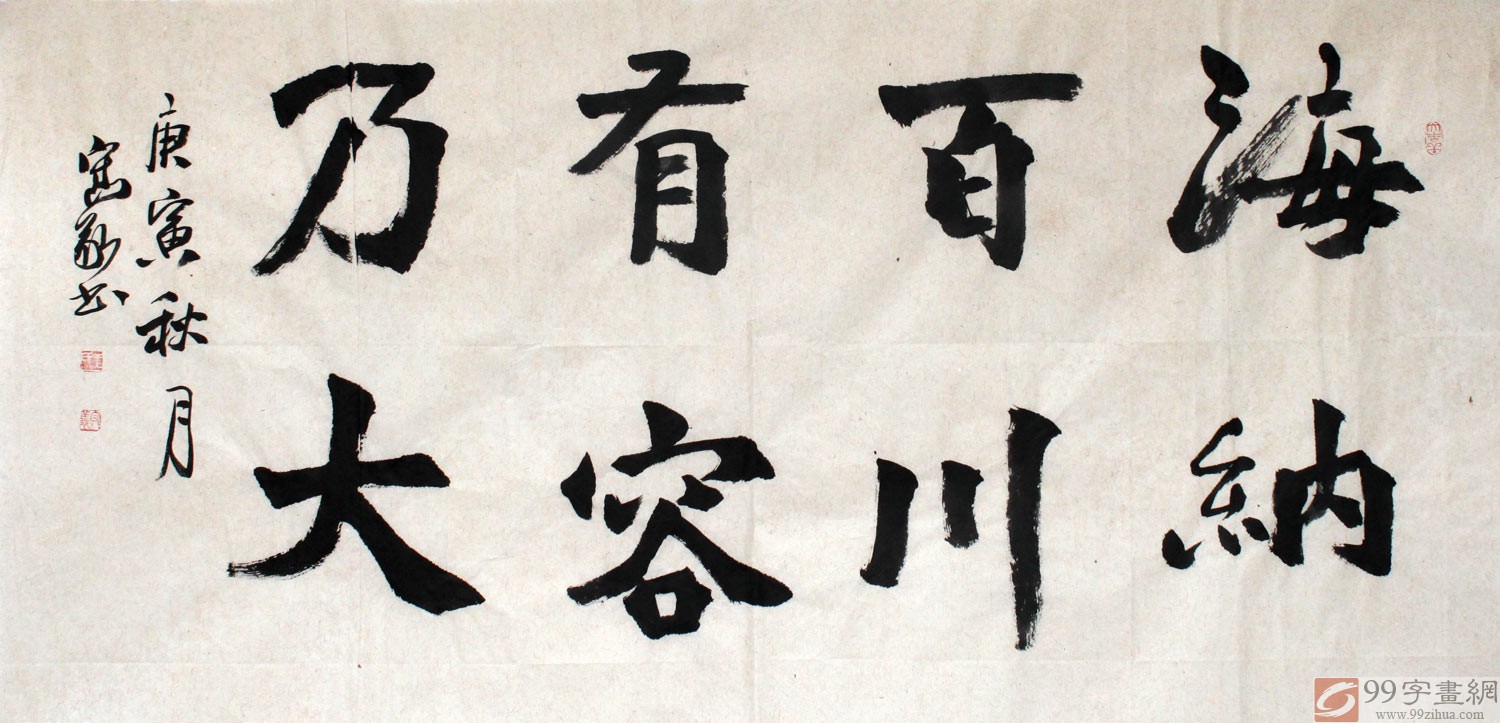 海納
百川
有容
乃大
庚寅秋月
书
99字畫網
www.99zihua.com